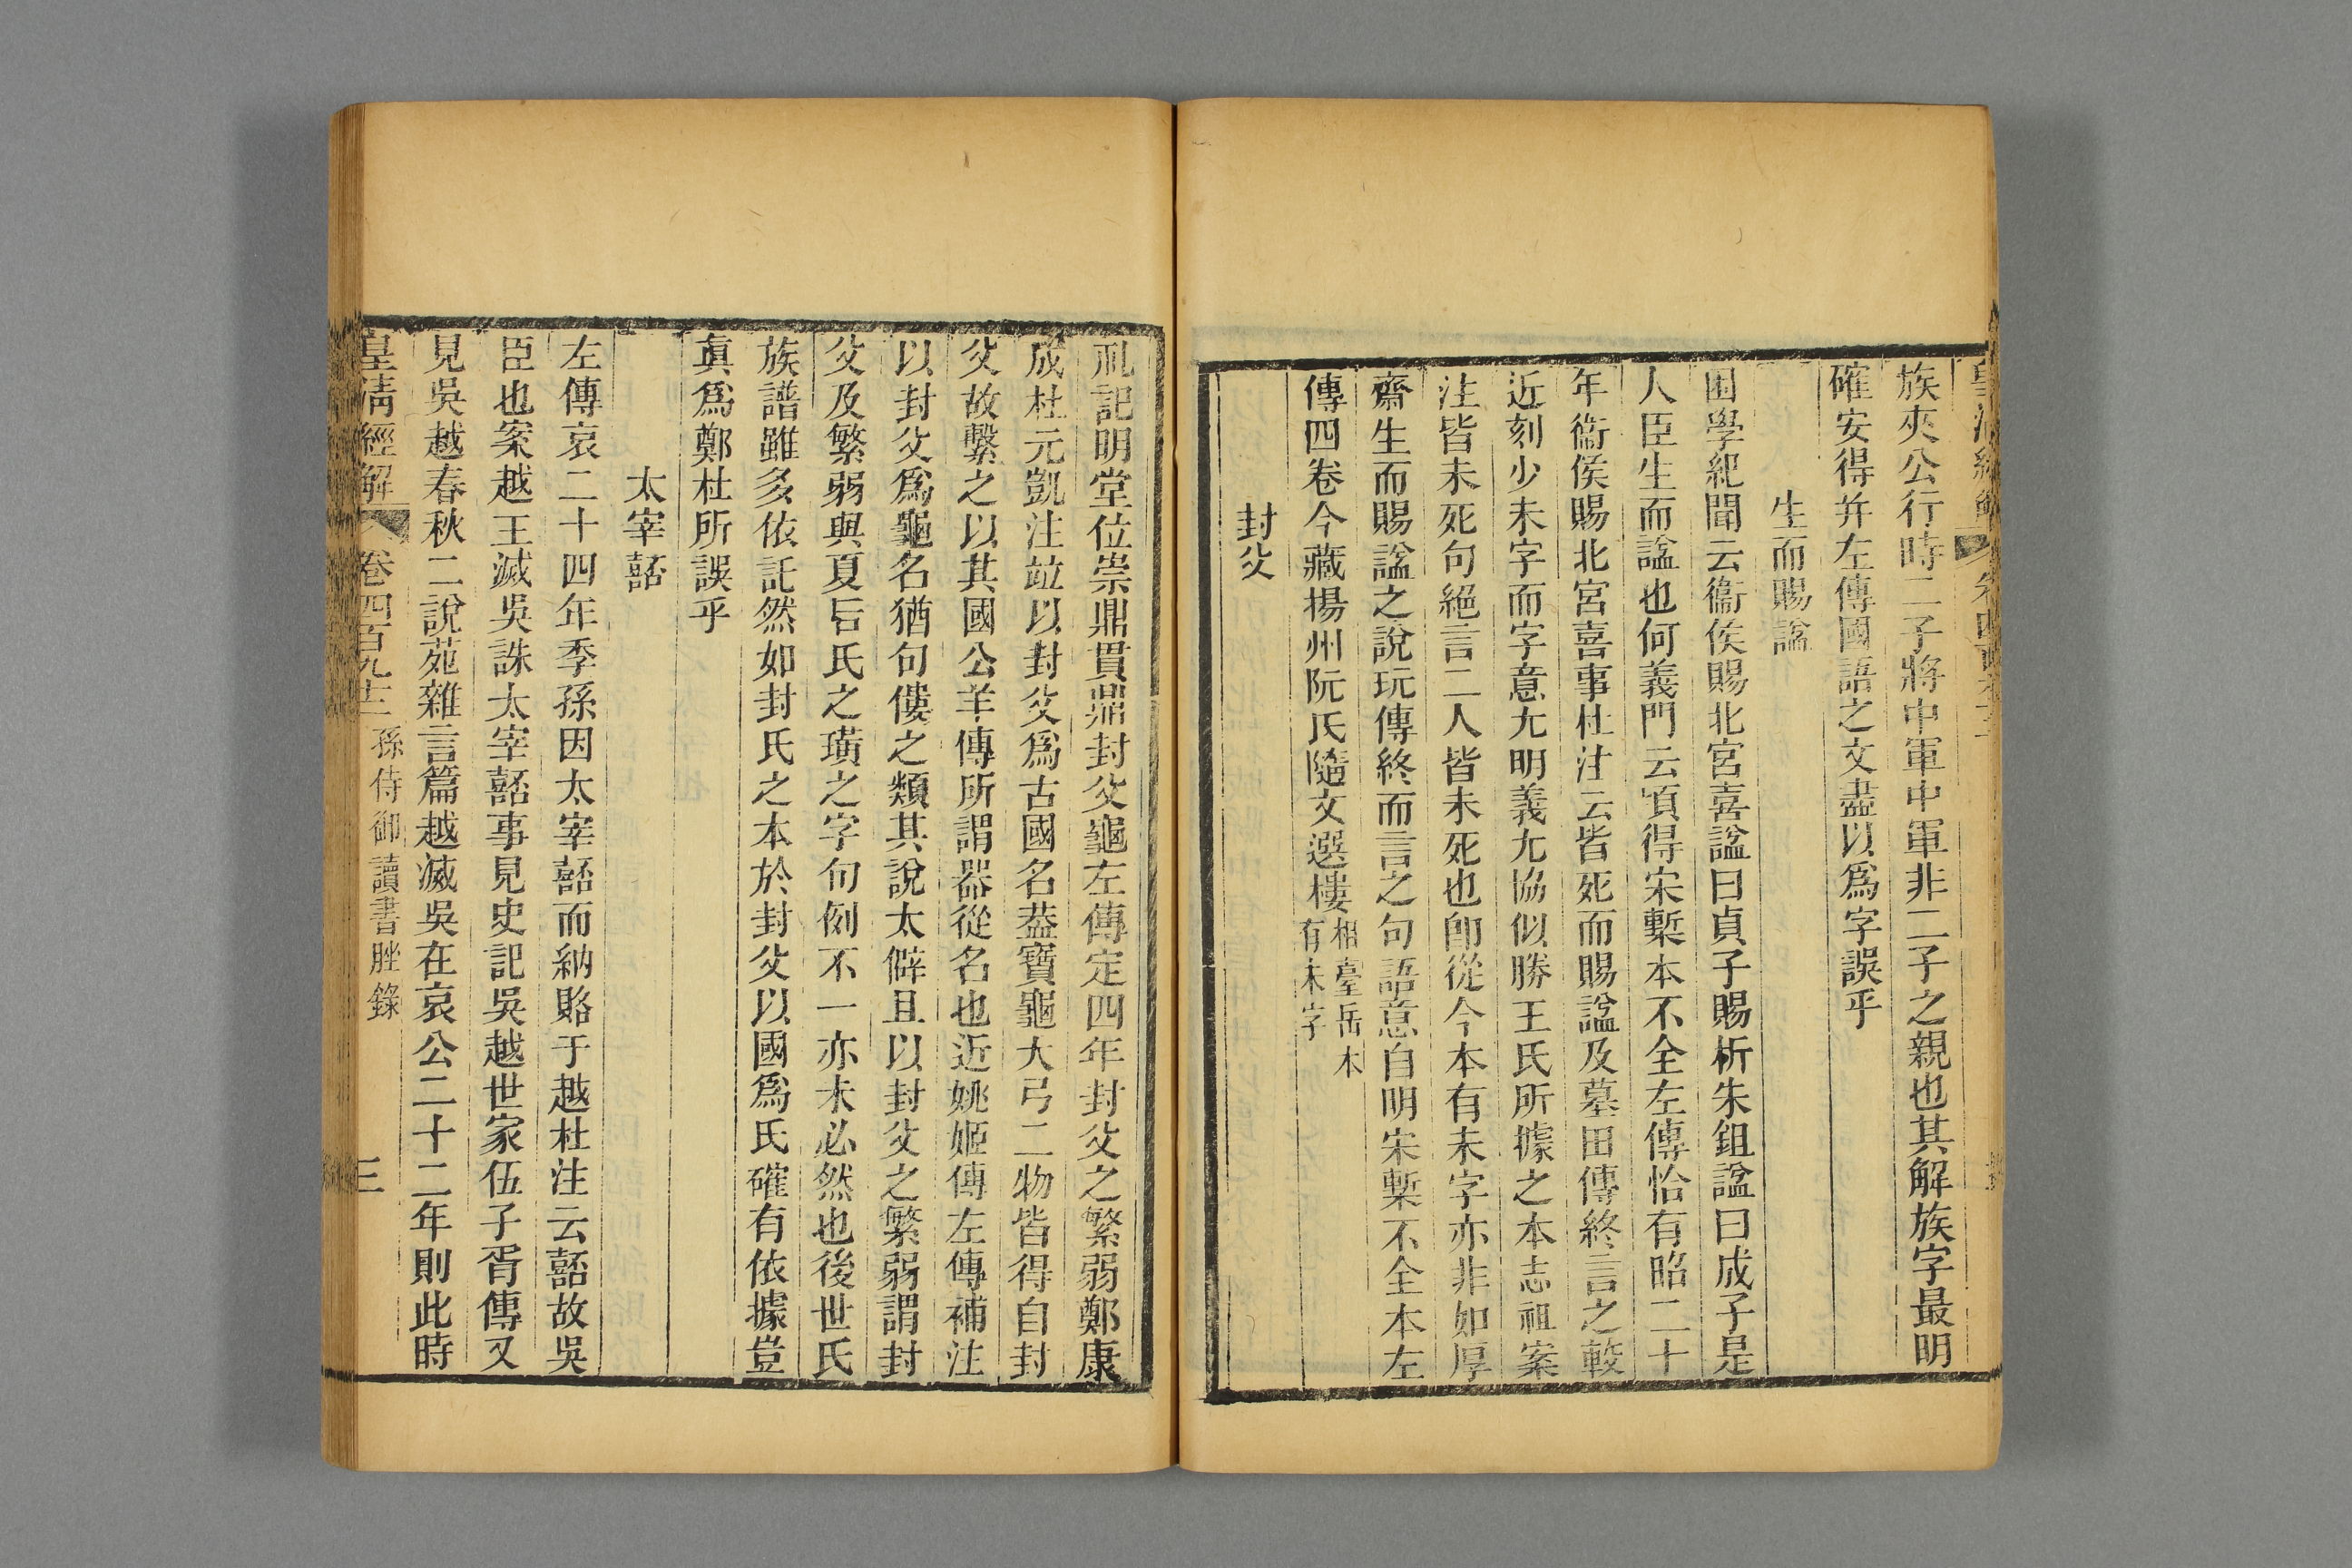 族夾公行時二子將中軍中軍非二子之親也其解族字最明
確安得并左傳國語之文盡以爲字誤乎
生而賜諡
困學紀聞云衞侯賜北宮喜諡曰貞子賜析朱鉏諡曰成子是
人臣生而諡也何義門云頃得宋槧本不全左傳恰有昭二十
年衞侯賜北宮喜事杜注云皆死而賜諡及墓田傳終言之較
近刻少未字而字意尢明義尢協似勝王氏所據之本志祖案
注皆未死句絕言二人皆未死也卽從今本有未字亦非如厚
齋生而賜諡之說玩傳終而言之句語意自明宋槧不全本左
傳四卷今藏揚州阮氏隨文選樓相臺岳本有未字
封父
礼記明堂位崇鼎貫鼎封父龜左傳定四年封父之繁弱鄭康
成杜元凱注竝以封父爲古國名葢寶龜大弓二物皆得自封
父故繫之以其國公羊傳所謂器從名也近姚姬傳左傳補注
以封父爲龜名猶句僂之類其說太僻且以封父之繁弱謂封
父及繁弱與夏后氏之璜之字句例不一亦未必然也後世氏
族譜雖多依託然如封氏之本於封父以國爲氏確有依據豈
眞爲鄭杜所誤乎
太宰嚭
左傳哀二十四年季孫因太宰嚭而納賂于越杜注云嚭故吳
臣也案越王滅吳誅太宰嚭事見史記吳越世家伍子胥傳又
見吳越春秋二說苑雜言篇越滅吳在哀公二十二年則此時
皇清經解 卷四百九十二 孫侍御讀書脞錄 三